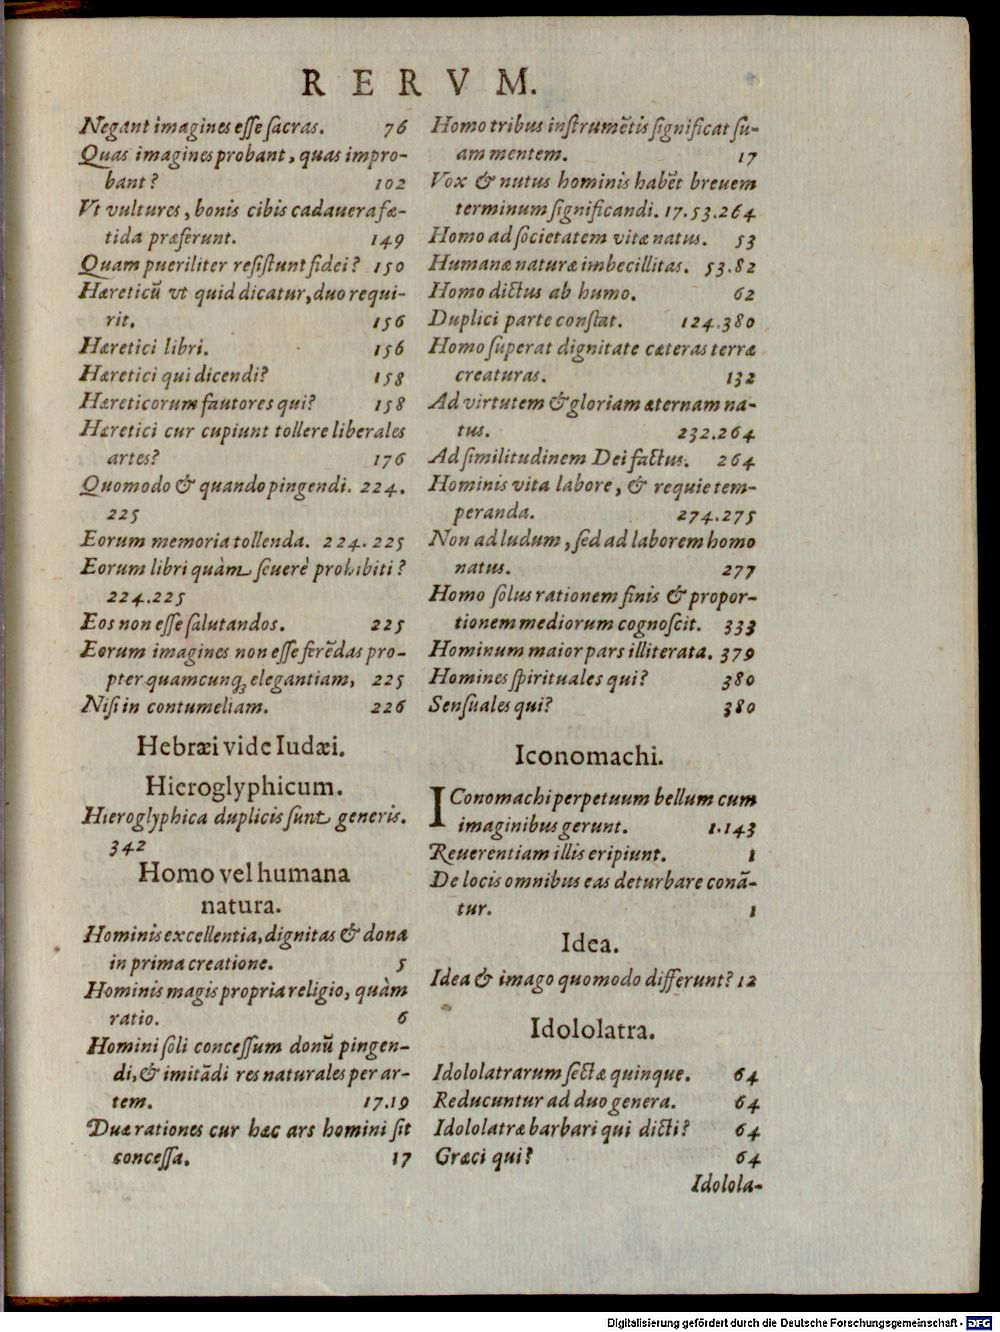 RERVM.
Negant imagines eſſe ſacras. 76
Quas imagines probant, quas impro-
bant? 102
Vt vultures, bonis cibis cadauera fæ-
tida præferunt. 149
Quam pueriliter reſiſtunt fidei? 150
Hæreticū vt quid dicatur, duo requi-
rit. 156
Hæretici libri. 156
Hæretici qui dicendi? 158
Hæreticorum fautores qui? 158
Hæretici cur cupiunt tollere liberales
artes? 176
Quomodo & quando pingendi. 224.
225
Eorum memoria tollenda. 224.225
Eorum libri quàm ſeuerè prohibiti?
224.225
Eos non eſſe ſalutandos. 225
Eorum imagines non eſſe ferēdas pro-
pter quamcunq; elegantiam, 225
Niſi in contumeliam. 226
Hebræi vide Iudæi.
Hieroglyphicum.
Hieroglyphica duplicis ſunt generis.
342
Homo vel humana
natura.
Hominis excellentia, dignitas & dona
in prima creatione. 5
Hominis magis propria religio, quàm
ratio. 6
Homini ſoli conceſſum donū pingen-
di, & imitādi res naturales per ar-
tem. 17.19
Duæ rationes cur hæc ars homini ſit
conceſſa. 17
Homo tribus inſtrumētis ſignificat ſu-
am mentem. 17
Vox & nutus hominis habēt breuem
terminum ſignificandi. 17.53.264
Homo ad ſocietatem vitæ natus. 53
Humanæ naturæ imbecillitas. 53.82
Homo dictus ab humo. 62
Duplici parte conſtat. 124.380
Homo ſuperat dignitate cæteras terræ
creaturas. 132
Ad virtutem & gloriam æternam na-
tus. 232.264
Ad ſimilitudinem Dei factus. 264
Hominis vita labore, & requie tem-
peranda. 274.275
Non ad ludum, ſed ad laborem homo
natus. 277
Homo ſolus rationem finis & propor-
tionem mediorum cognoſcit. 333
Hominum maior pars illiterata. 379
Homines ſpirituales qui? 380
Senſuales qui? 380
Iconomachi.
IConomachi perpetuum bellum cum
imaginibus gerunt. 1.143
Reuerentiam illis eripiunt. 1
De locis omnibus eas deturbare conā-
tur. 1
Idea.
Idea & imago quomodo differunt? 12
Idololatra.
Idololatrarum ſectæ quinque. 64
Reducuntur ad duo genera. 64
Idololatræ barbari qui dicti? 64
Græci qui? 64
Idolola-
Digitalisierung gefördert durch die Deutsche Forschungsgemeinschaft - DFG